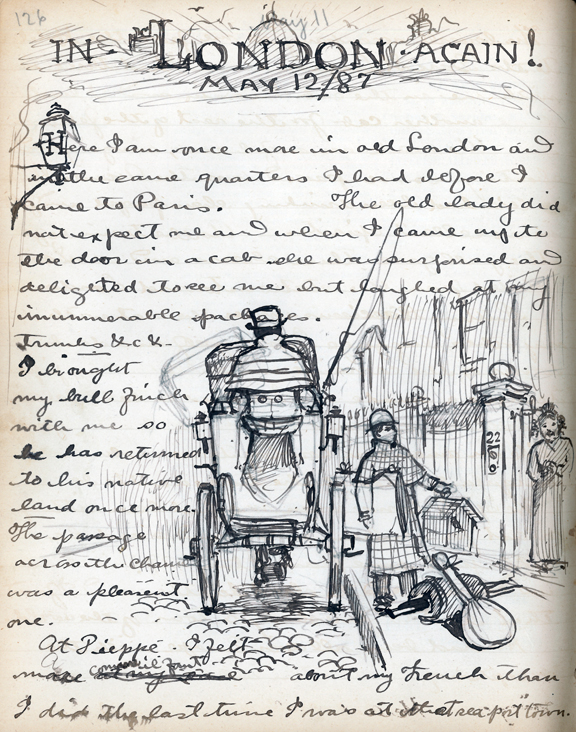 126
May 11
IN LONDON AGAIN!
MAY 12/87
Here I am once more in old London and
in the same quarters I had before I
came to Paris. The old lady did
not expect me and when I came up to
the door in a cab she was surprised and
delighted to see me but laughed at my
innumerable packages.
Trunks &c &c-
I brought
my bull finch
with me so
he has returned
to his native
land once more.
The passage
across the channel
was a pleasant
one.
At Dieppe I felt
more comfortable about my French than
I did the last time I was at that sea port town.
22